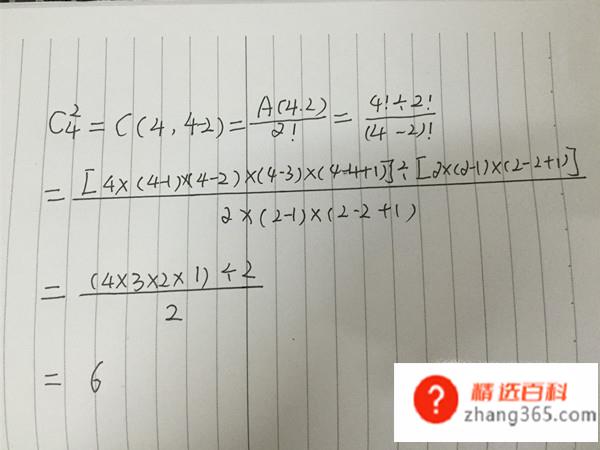 C₄² = C(4, 4-2) = A(4.2)/2! = 4!÷2!/(4-2)!
= [4×(4-1)×(4-2)×(4-3)×(4-4+1)]÷[2×(2-1)×(2-2+1)]/2×(2-1)×(2-2+1)
= (4×3×2×1)÷2/2
= 6
精选百科
zhang365.com